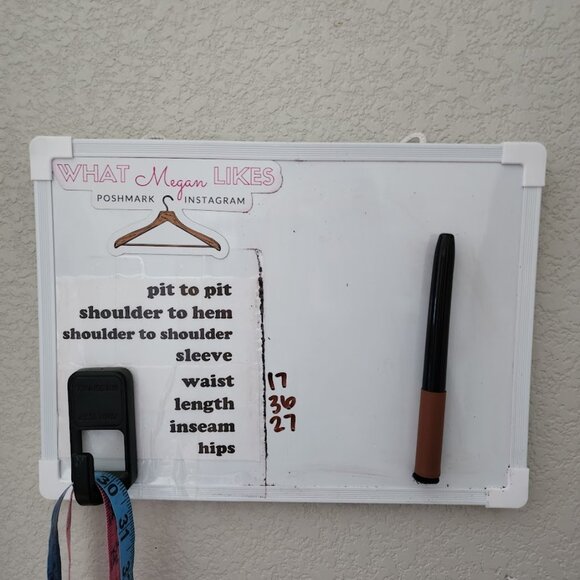 WHAT Megan LIKES
POSHMARK INSTAGRAM
pit to pit
shoulder to hem
shoulder to shoulder
sleeve
waist 17
length 36
inseam 27
hips
30
31